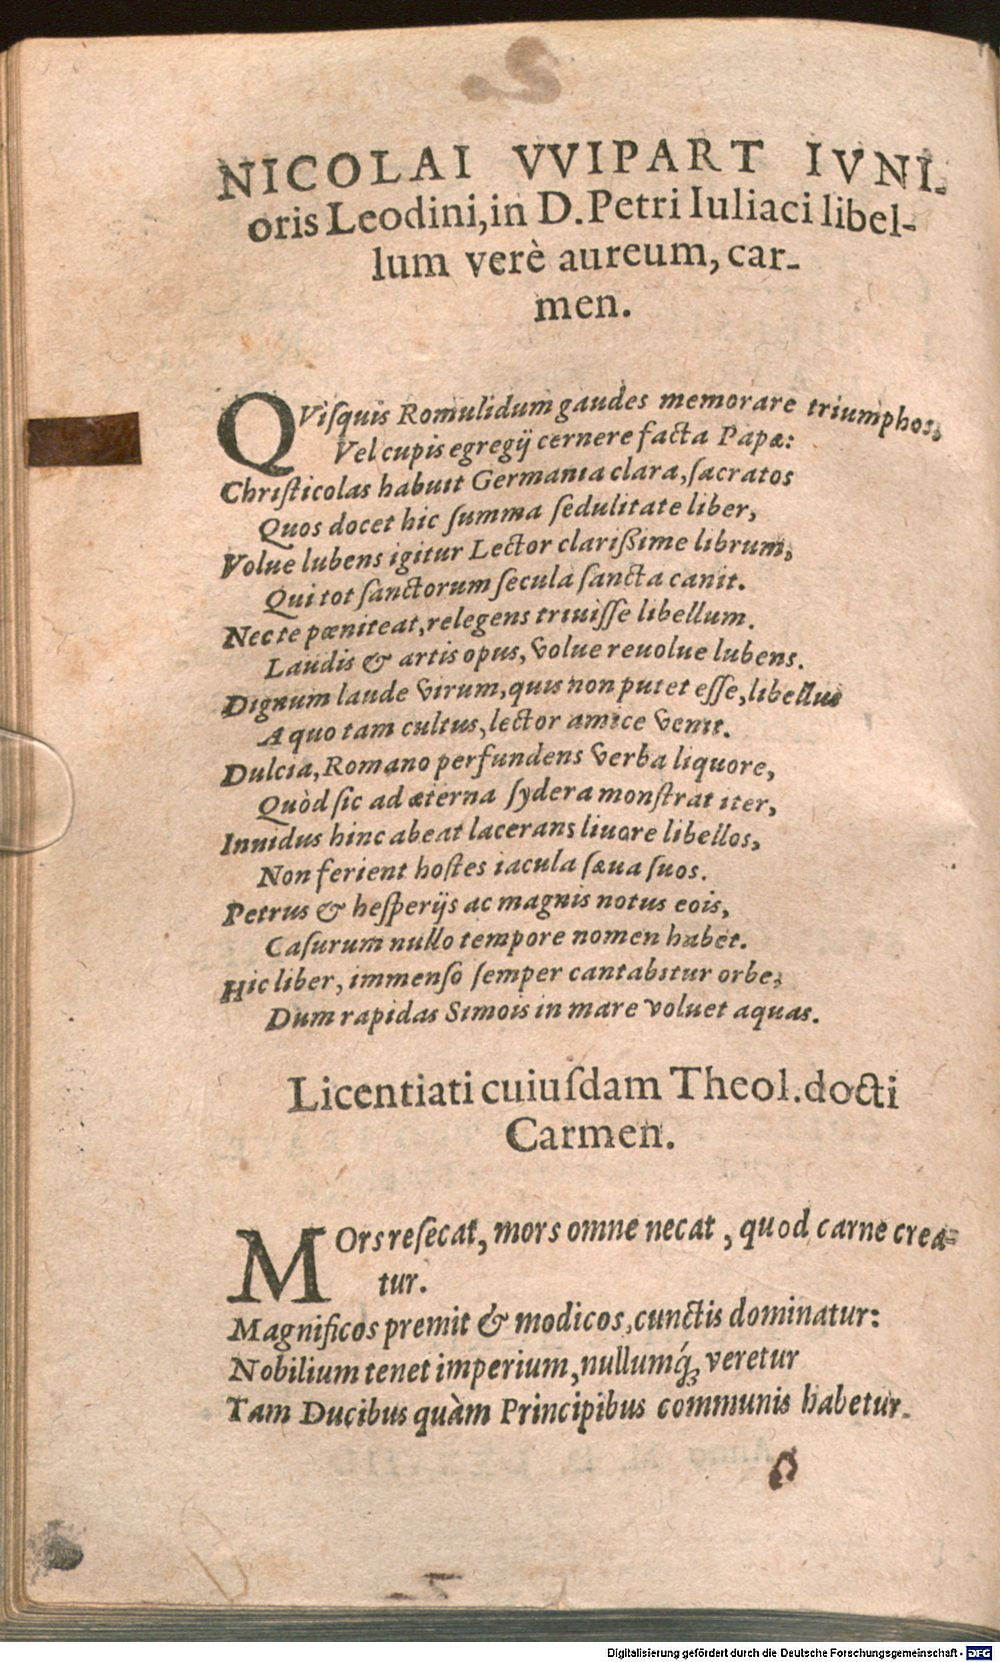 NICOLAI VVIPART IVNI-
oris Leodini, in D. Petri Iuliaci libel-
lum verè aureum, car-
men.
QViſquis Romulidum gaudes memorare triumphos,
Vel cupis egregij cernere facta Papæ:
Chriſticolas habuit Germania clara, ſacratos
Quos docet hic ſumma ſedulitate liber,
Volue lubens igitur Lector clarißime librum,
Qui tot ſanctorum ſecula ſancta canit.
Nec te pœniteat, relegens triuiſſe libellum.
Laudis & artis opus, volue reuolue lubens.
Dignum laude virum, quis non putet eſſe, libellus
A quo tam cultus, lector amice venit.
Dulcia, Romano perfundens verba liquore,
Quòd ſic ad æterna ſydera monſtrat iter,
Inuidus hinc abeat lacerans liuore libellos,
Non ferient hoſtes iacula ſæua ſuos.
Petrus & heſperijs ac magnis notus eois,
Caſurum nullo tempore nomen habet.
Hic liber, immenſo ſemper cantabitur orbe,
Dum rapidas Simois in mare voluet aquas.
Licentiati cuiuſdam Theol. docti
Carmen.
MOrs reſecat, mors omne necat, quod carne crea-
tur.
Magnificos premit & modicos, cunctis dominatur:
Nobilium tenet imperium, nullumq́ꝫ veretur
Tam Ducibus quàm Principibus communis habetur.
Digitalisierung gefördert durch die Deutsche Forschungsgemeinschaft - DFG